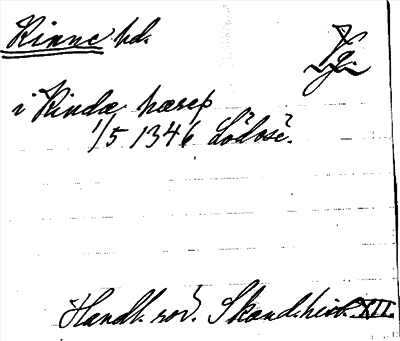 Kinne hd. Vg.
i Kindæ hæreþ
1/5 1346 Lödose.
Handl. rör. Skand. hist. XII.